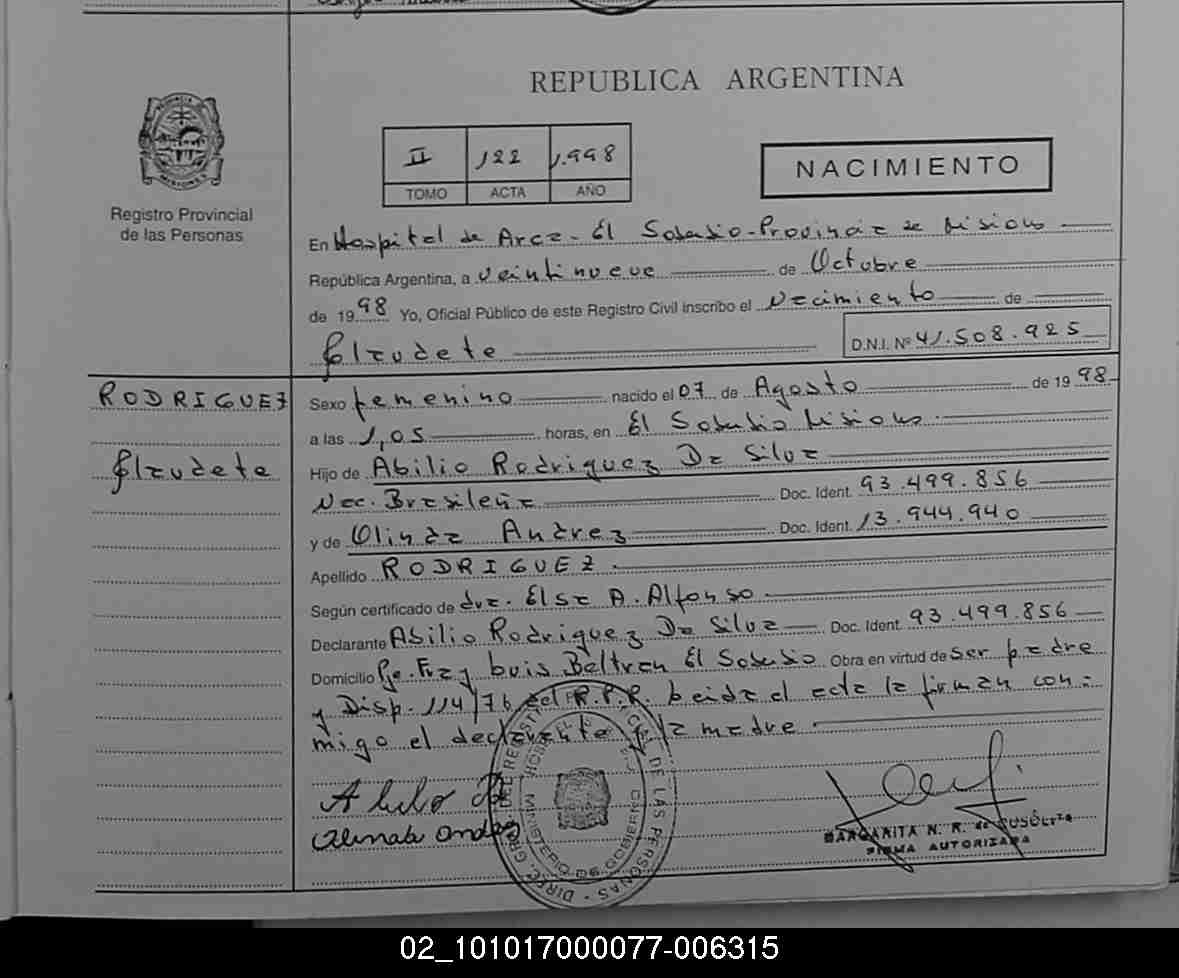 REPUBLICA ARGENTINA
II 122 1.998
TOMO ACTA AÑO
NACIMIENTO
Registro Provincial
de las Personas
En Hospital de Area - El Soberbio - Provincia de Misiones
República Argentina, a veintinueve de Octubre
de 1998 Yo, Oficial Público de este Registro Civil inscribo el Nacimiento de
Claudete D.N.I. Nº 41.508.925
RODRIGUEZ
Claudete
Sexo femenino nacido el 07 de Agosto de 1998
a las 1,05 horas, en El Soberbio Misiones
Hijo de Abilio Rodriguez Da Silva
Nac. Brasileña Doc. Ident. 93.499.856
y de Olinda Andrez Doc. Ident. 13.944.940
Apellido RODRIGUEZ.
Según certificado de dra. Elsa A. Alfonso
Declarante Abilio Rodriguez Da Silva Doc. Ident. 93.499.856
Domicilio Pje. Fray Luis Beltran El Soberbio Obra en virtud de ser padre
y Disp. 114/76 del R.P.P. Leida el acta la firman con-
migo el declarante y la madre
MARGARITA N. R. de
FIRMA AUTORIZADA
02_101017000077-006315